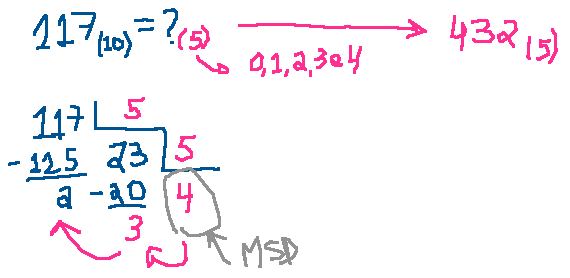 117(10) = ?(5) → 432(5)
0,1,2,3 e 4
117 5
-125 23 5
2 -20 4
3
MSD